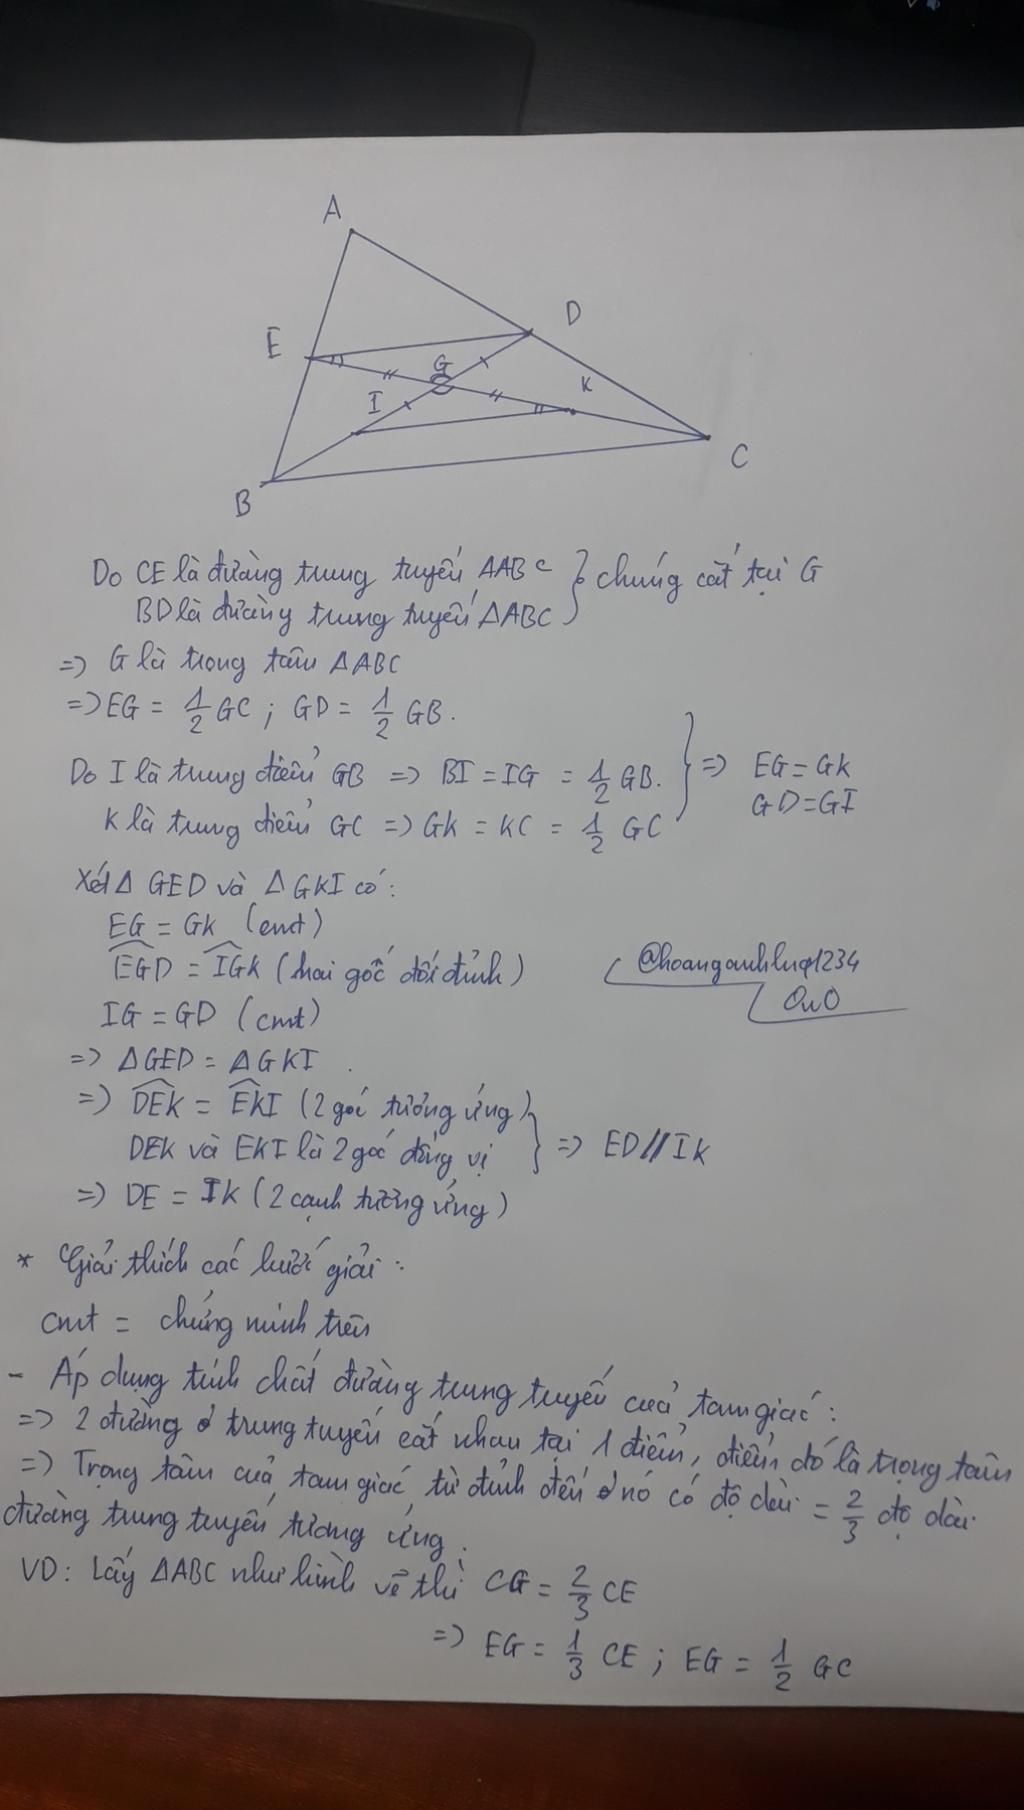 A
D
E
G
K
I
C
B
Do CE là đường trung tuyến ΔABC } chúng cắt tại G
BD là đường trung tuyến ΔABC
=> G là trọng tâm ΔABC
=> EG = 1/2 GC ; GD = 1/2 GB.
Do I là trung điểm GB => BI = IG = 1/2 GB. } => EG = GK
K là trung điểm GC => GK = KC = 1/2 GC GD = GI
Xét Δ GED và Δ GKI có:
EG = GK (cmt)
EGD = IGK (hai góc đối đỉnh)
@hoanganhlup1234
OwO
IG = GD (cmt)
=> ΔGED = ΔGKI
=> DEK = EKI (2 góc tương ứng) } => ED // IK
DEK và EKI là 2 góc đồng vị
=> DE = IK (2 cạnh tương ứng)
* Giải thích các bước giải :
cmt = chứng minh trên
- Áp dụng tính chất đường trung tuyến của tam giác :
=> 2 đường trung tuyến cắt nhau tại 1 điểm, điểm đó là trọng tâm
=> Trọng tâm của tam giác từ đỉnh đến nó có độ dài = 2/3 độ dài
đường trung tuyến tương ứng.
VD: Lấy ΔABC như hình vẽ thì CG = 2/3 CE
=> EG = 1/3 CE ; EG = 1/2 GC